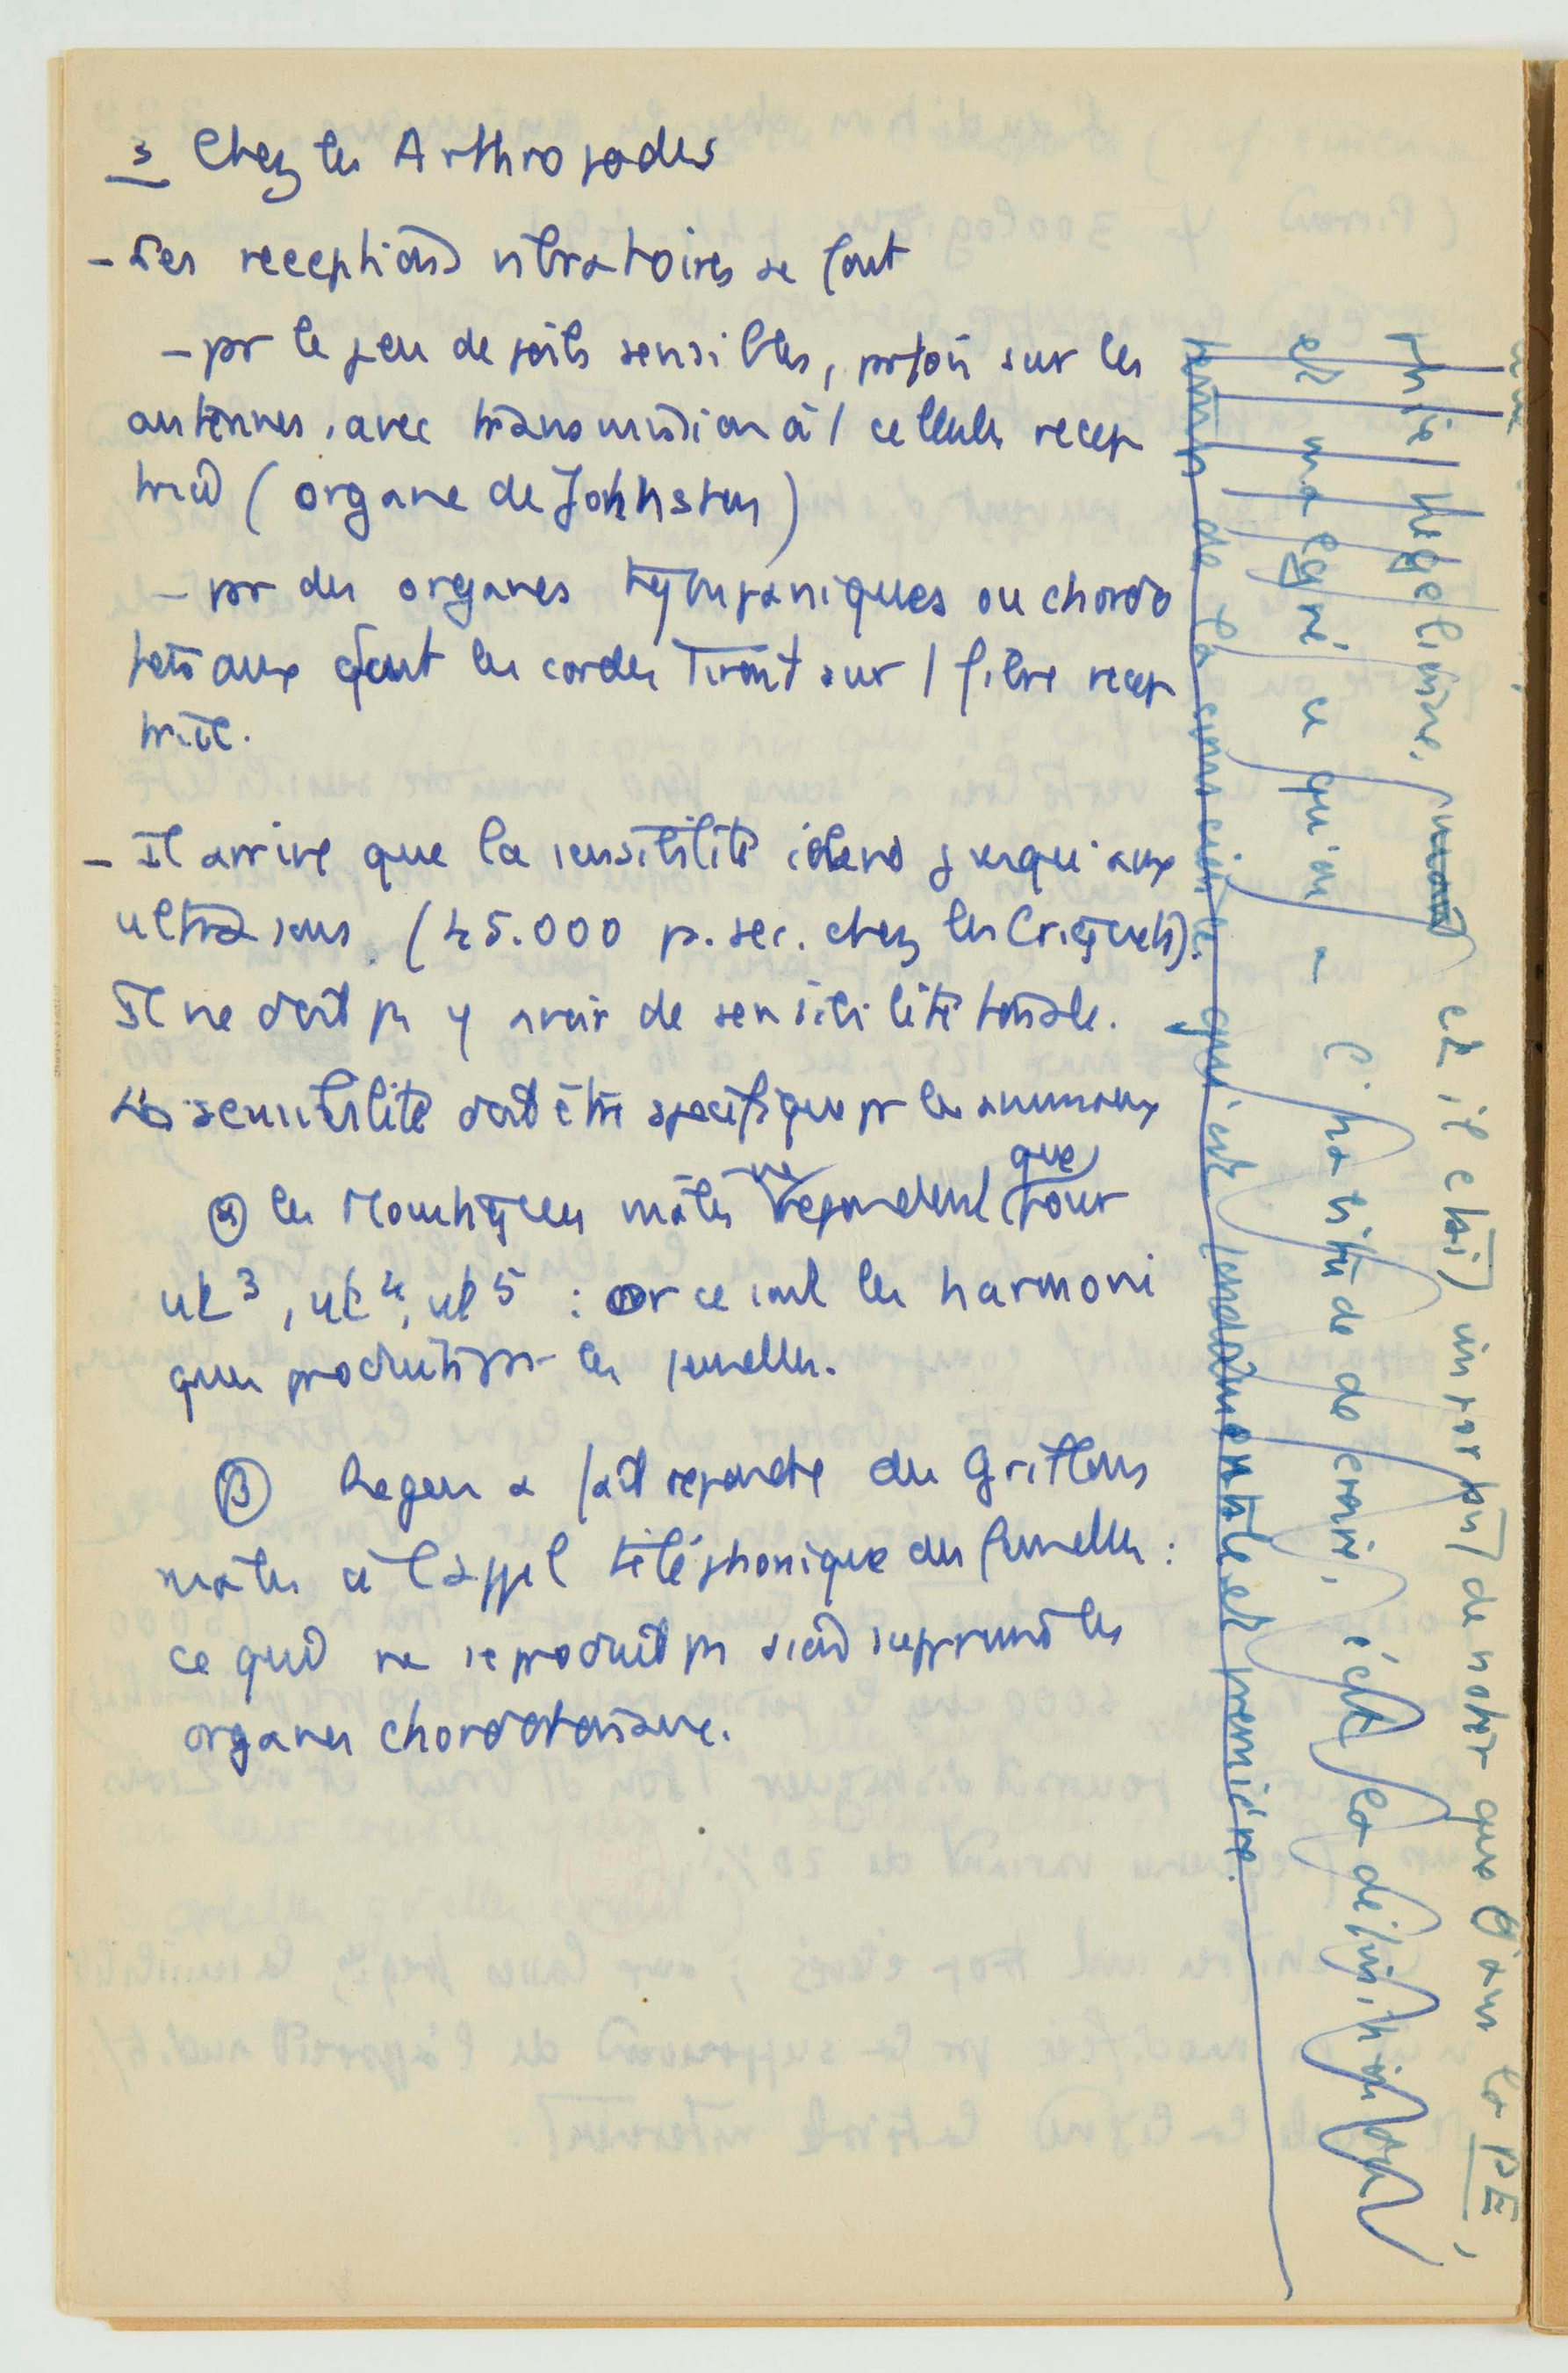 3 Chez les Arthropodes
- Les receptions vibratoires se font
- pr le jeu de poils sensibles, prfois sur les
antennes, avec transmission à / cellule recep
trice (organe de Johnston)
- pr des organes tympaniques ou chordo
tonaux dont les cordes tirent sur / fibre recep
trice.
- Il arrive que la sensibilité s'étend jusqu'aux
ultra sons. (45.000 p. sec. chez les Criquets).
Il ne doit ps y avoir de sensibilité tonale.
La sensibilité doit être specifique pr les animaux
α) les Moustiques mâles ne repondent que pour
ut 3, ut 4, ut 5 : or ce sont les harmoni
ques produits pr les femelles.
β) Regen a fait repondre des Grillons
mâles à l'appel téléphonique des femelles :
ce qui ne se produit ps si on supprime les
organes chordotonaux.
temps de la conscience qui est fondamentale et première.
est malgré ce qu'on a l'habitude de croire, c'est la définition
phie hegelienne, et il est important de noter que dans la PE,